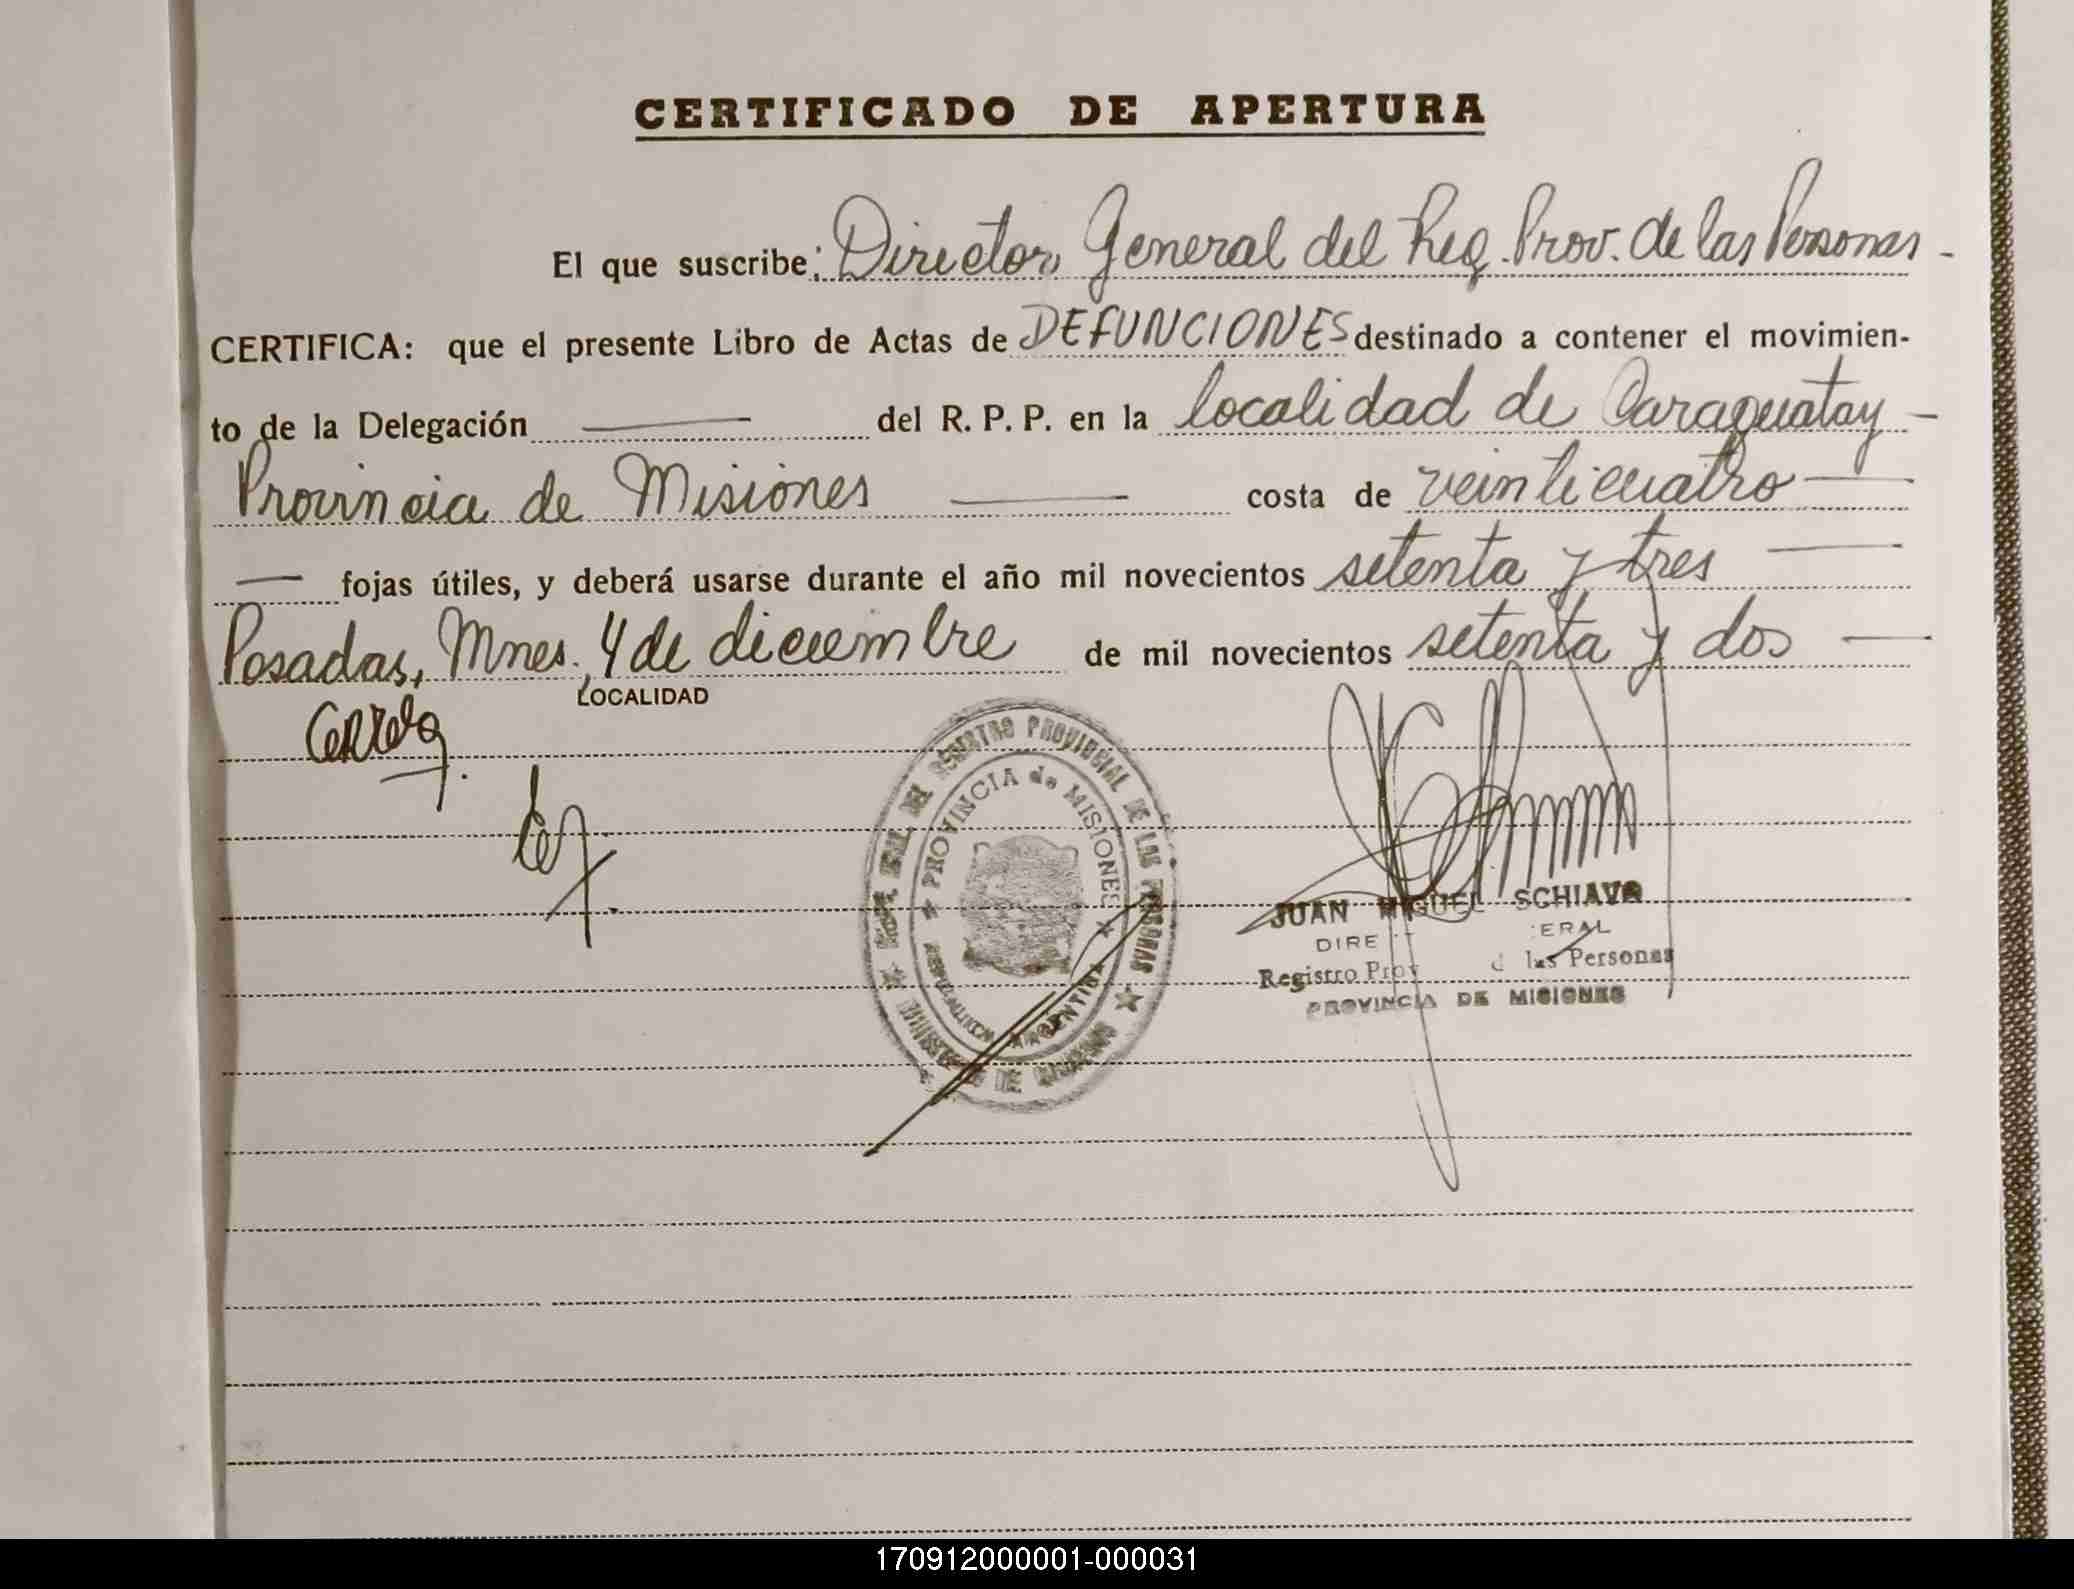 CERTIFICADO DE APERTURA
El que suscribe: Director General del Reg. Prov. de las Personas -
CERTIFICA: que el presente Libro de Actas de DEFUNCIONES destinado a contener el movimien-
to de la Delegación —— del R. P. P. en la localidad de Caraguatay -
Provincia de Misiones —— costa de veinticuatro ——
— fojas útiles, y deberá usarse durante el año mil novecientos setenta y tres ——
Posadas, Mnes. 4 de diciembre de mil novecientos setenta y dos ——
LOCALIDAD
REGISTRO PROVINCIAL DE LAS PERSONAS
PROVINCIA de MISIONES
ARGENTINA
JUAN MIGUEL SCHIAVO
DIRE ERAL
Registro Prov d las Personas
PROVINCIA DE MISIONES
170912000001-000031